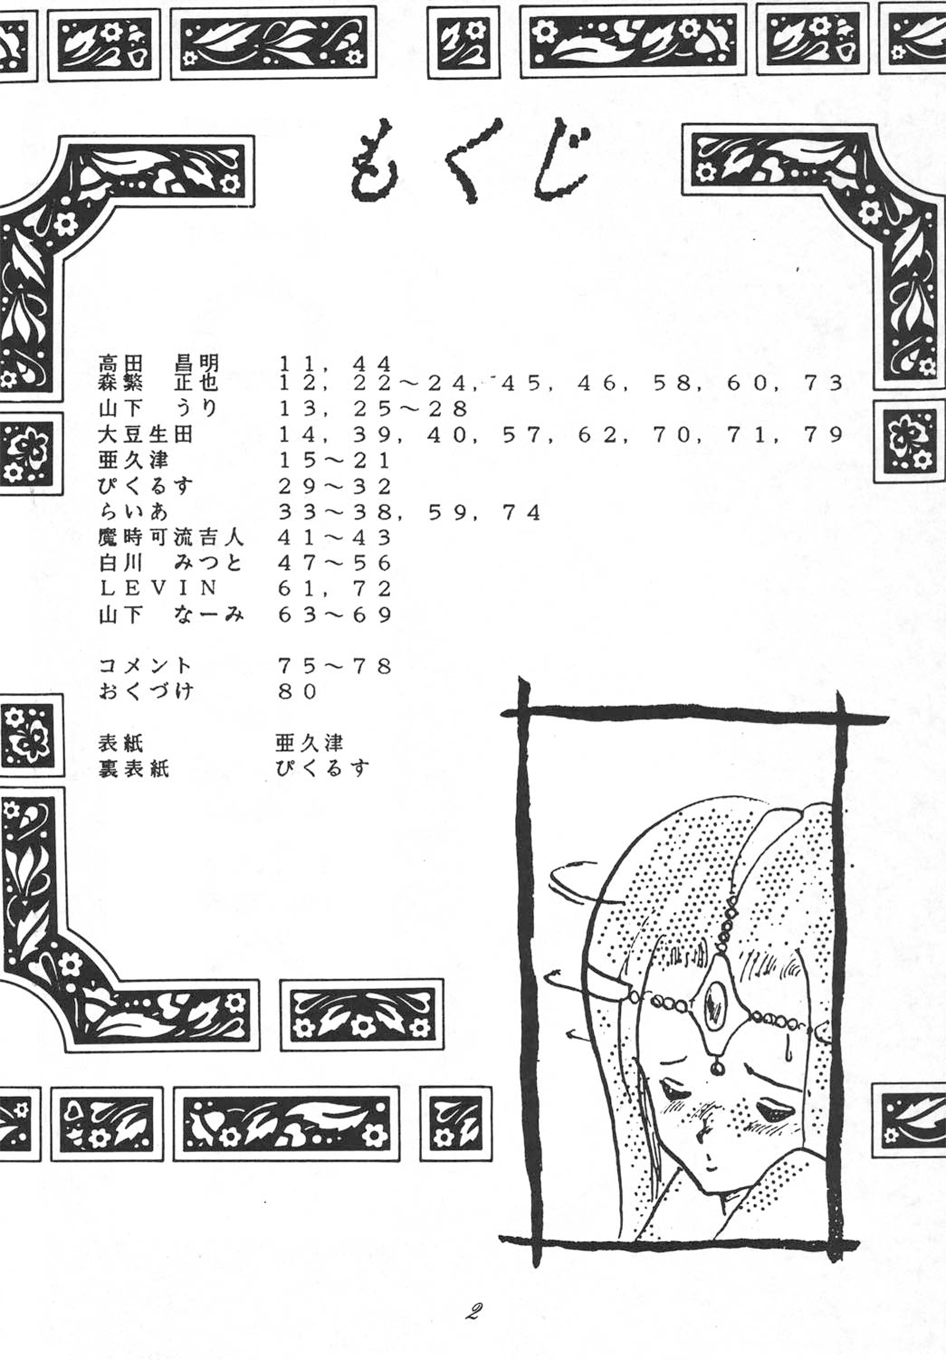 もくじ
高田　昌明　１１，４４
森繁　正也　１２，２２～２４，４５，４６，５８，６０，７３
山下　うり　１３，２５～２８
大豆生田　１４，３９，４０，５７，６２，７０，７１，７９
亜久津　１５～２１
ぴくるす　２９～３２
らいあ　３３～３８，５９，７４
魔時可流吉人　４１～４３
白川　みつと　４７～５６
ＬＥＶＩＮ　６１，７２
山下　なーみ　６３～６９
コメント　７５～７８
おくづけ　８０
表紙　亜久津
裏表紙　ぴくるす
2